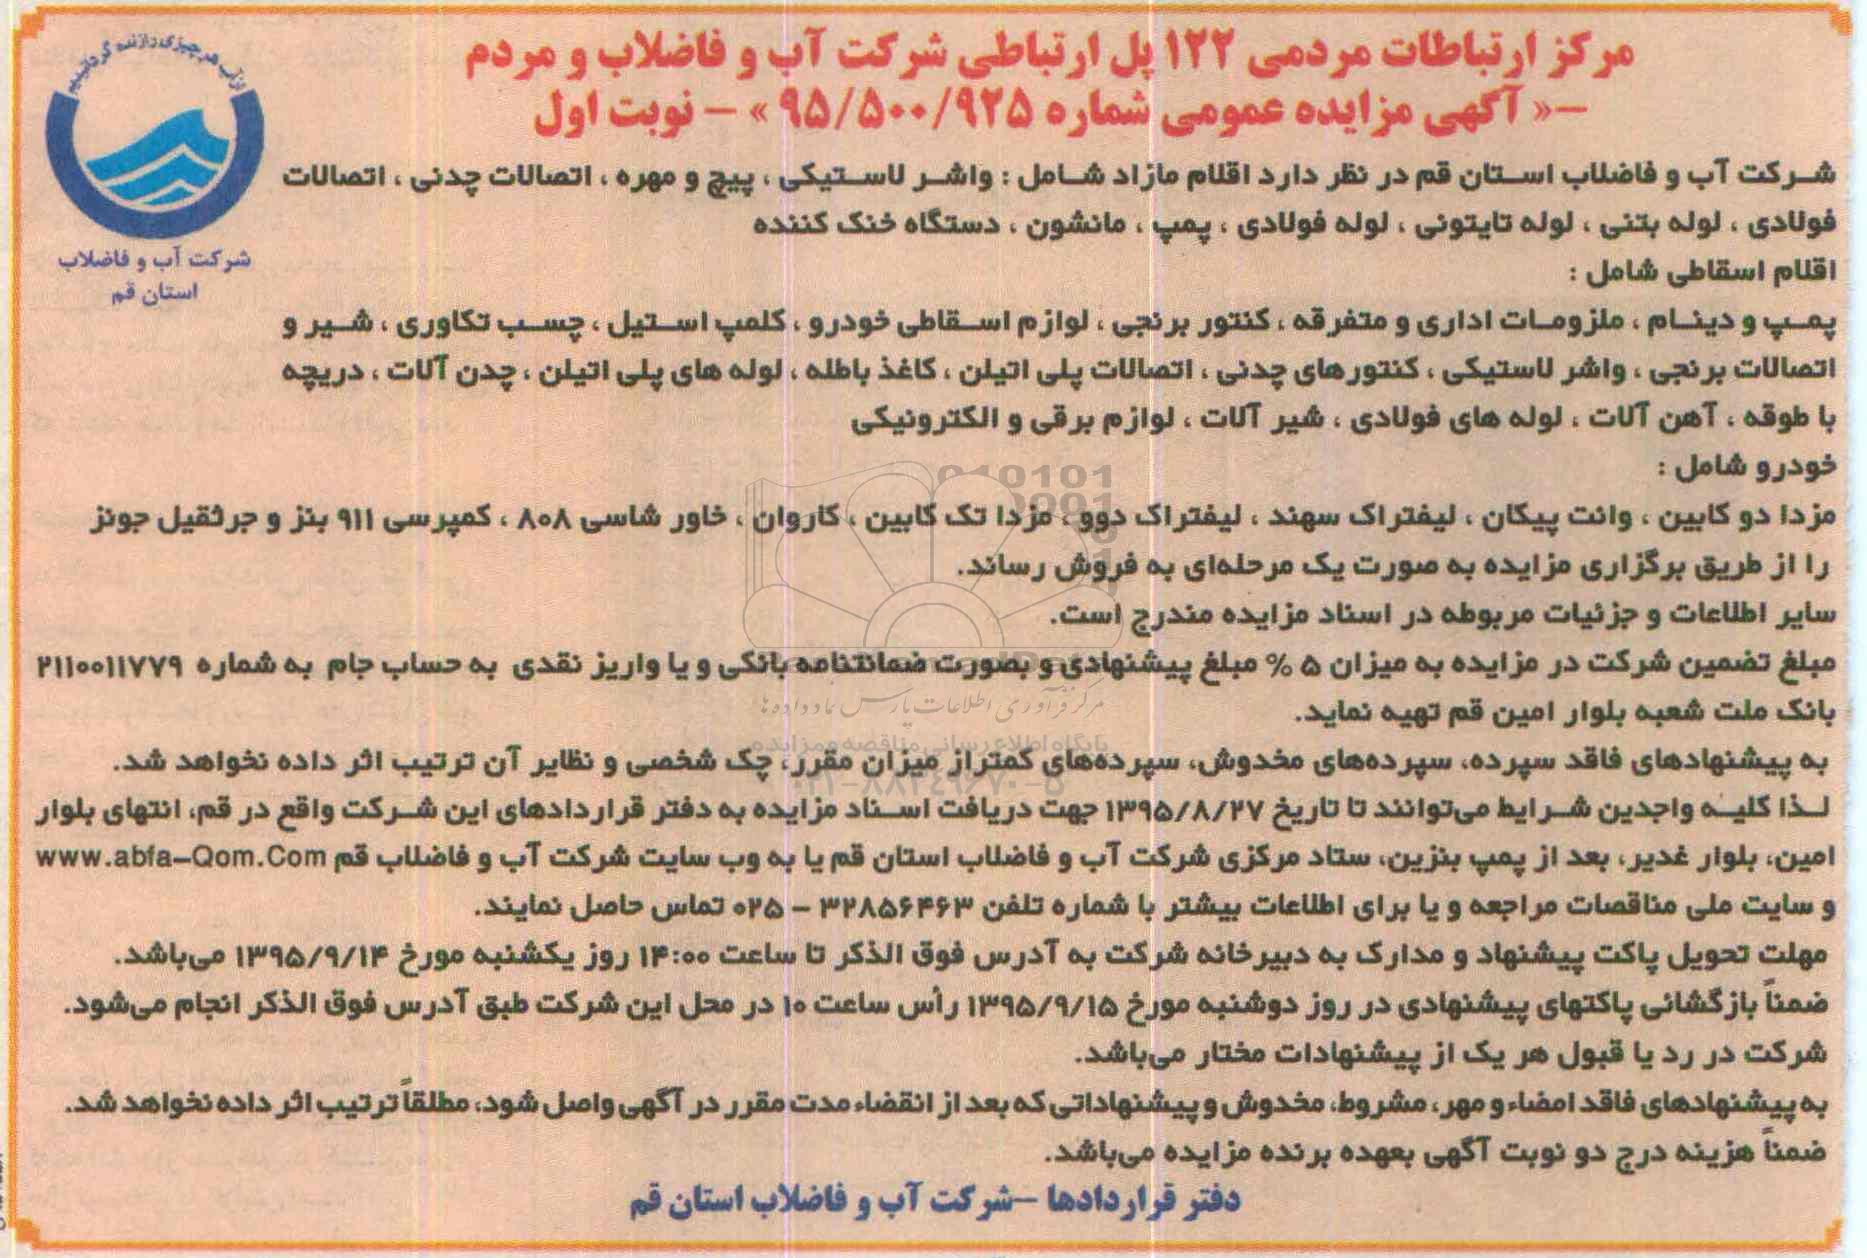 مرکز ارتباطات مردمی ۱۲۲ پل ارتباطی شرکت آب و فاضلاب و مردم
–« آگهی مزایده عمومی شماره ۹۵/۵۰۰/۹۲۵ » – نوبت اول
از آب هر چیزی را زنده گردانیدیم
شرکت آب و فاضلاب
استان قم
شرکت آب و فاضلاب استان قم در نظر دارد اقلام مازاد شامل : واشر لاستیکی ، پیچ و مهره ، اتصالات چدنی ، اتصالات
فولادی ، لوله بتنی ، لوله تایتونی ، لوله فولادی ، پمپ ، مانشون ، دستگاه خنک کننده
اقلام اسقاطی شامل :
پمپ و دینام ، ملزومات اداری و متفرقه ، کنتور برنجی ، لوازم اسقاطی خودرو ، کلمپ استیل ، چسب تکاوری ، شیر و
اتصالات برنجی ، واشر لاستیکی ، کنتورهای چدنی ، اتصالات پلی اتیلن ، کاغذ باطله ، لوله های پلی اتیلن ، چدن آلات ، دریچه
با طوقه ، آهن آلات ، لوله های فولادی ، شیر آلات ، لوازم برقی و الکترونیکی
خودرو شامل :
مزدا دو کابین ، وانت پیکان ، لیفتراک سهند ، لیفتراک دوو ، مزدا تک کابین ، کاروان ، خاور شاسی ۸۰۸ ، کمپرسی ۹۱۱ بنز و جرثقیل جونز
را از طریق برگزاری مزایده به صورت یک مرحله‌ای به فروش رساند.
سایر اطلاعات و جزئیات مربوطه در اسناد مزایده مندرج است.
مبلغ تضمین شرکت در مزایده به میزان ۵ % مبلغ پیشنهادی و بصورت ضمانتنامه بانکی و یا واریز نقدی به حساب جام به شماره ۲۱۱۰۰۱۱۷۷۹
بانک ملت شعبه بلوار امین قم تهیه نماید.
به پیشنهادهای فاقد سپرده، سپرده‌های مخدوش، سپرده‌های کمتر از میزان مقرر، چک شخصی و نظایر آن ترتیب اثر داده نخواهد شد.
لذا کلیه واجدین شرایط می‌توانند تا تاریخ ۱۳۹۵/۸/۲۷ جهت دریافت اسناد مزایده به دفتر قراردادهای این شرکت واقع در قم، انتهای بلوار
امین، بلوار غدیر، بعد از پمپ بنزین، ستاد مرکزی شرکت آب و فاضلاب استان قم یا به وب سایت شرکت آب و فاضلاب قم www.abfa-Qom.Com
و سایت ملی مناقصات مراجعه و یا برای اطلاعات بیشتر با شماره تلفن ۳۲۸۵۶۴۶۳ – ۰۲۵ تماس حاصل نمایند.
مهلت تحویل پاکت پیشنهاد و مدارک به دبیرخانه شرکت به آدرس فوق الذکر تا ساعت ۱۴:۰۰ روز یکشنبه مورخ ۱۳۹۵/۹/۱۴ می‌باشد.
ضمناً بازگشائی پاکتهای پیشنهادی در روز دوشنبه مورخ ۱۳۹۵/۹/۱۵ رأس ساعت ۱۰ در محل این شرکت طبق آدرس فوق الذکر انجام می‌شود.
شرکت در رد یا قبول هر یک از پیشنهادات مختار می‌باشد.
به پیشنهادهای فاقد امضاء و مهر، مشروط، مخدوش و پیشنهاداتی که بعد از انقضاء مدت مقرر در آگهی واصل شود، مطلقاً ترتیب اثر داده نخواهد شد.
ضمناً هزینه درج دو نوبت آگهی بعهده برنده مزایده می‌باشد.
دفتر قراردادها –شرکت آب و فاضلاب استان قم
مرکز فرآوری اطلاعات پارس نماد داده ها
پایگاه اطلاع رسانی مناقصه و مزایده
۰۲۱-۸۸۳۴۹۶۷۰-۵